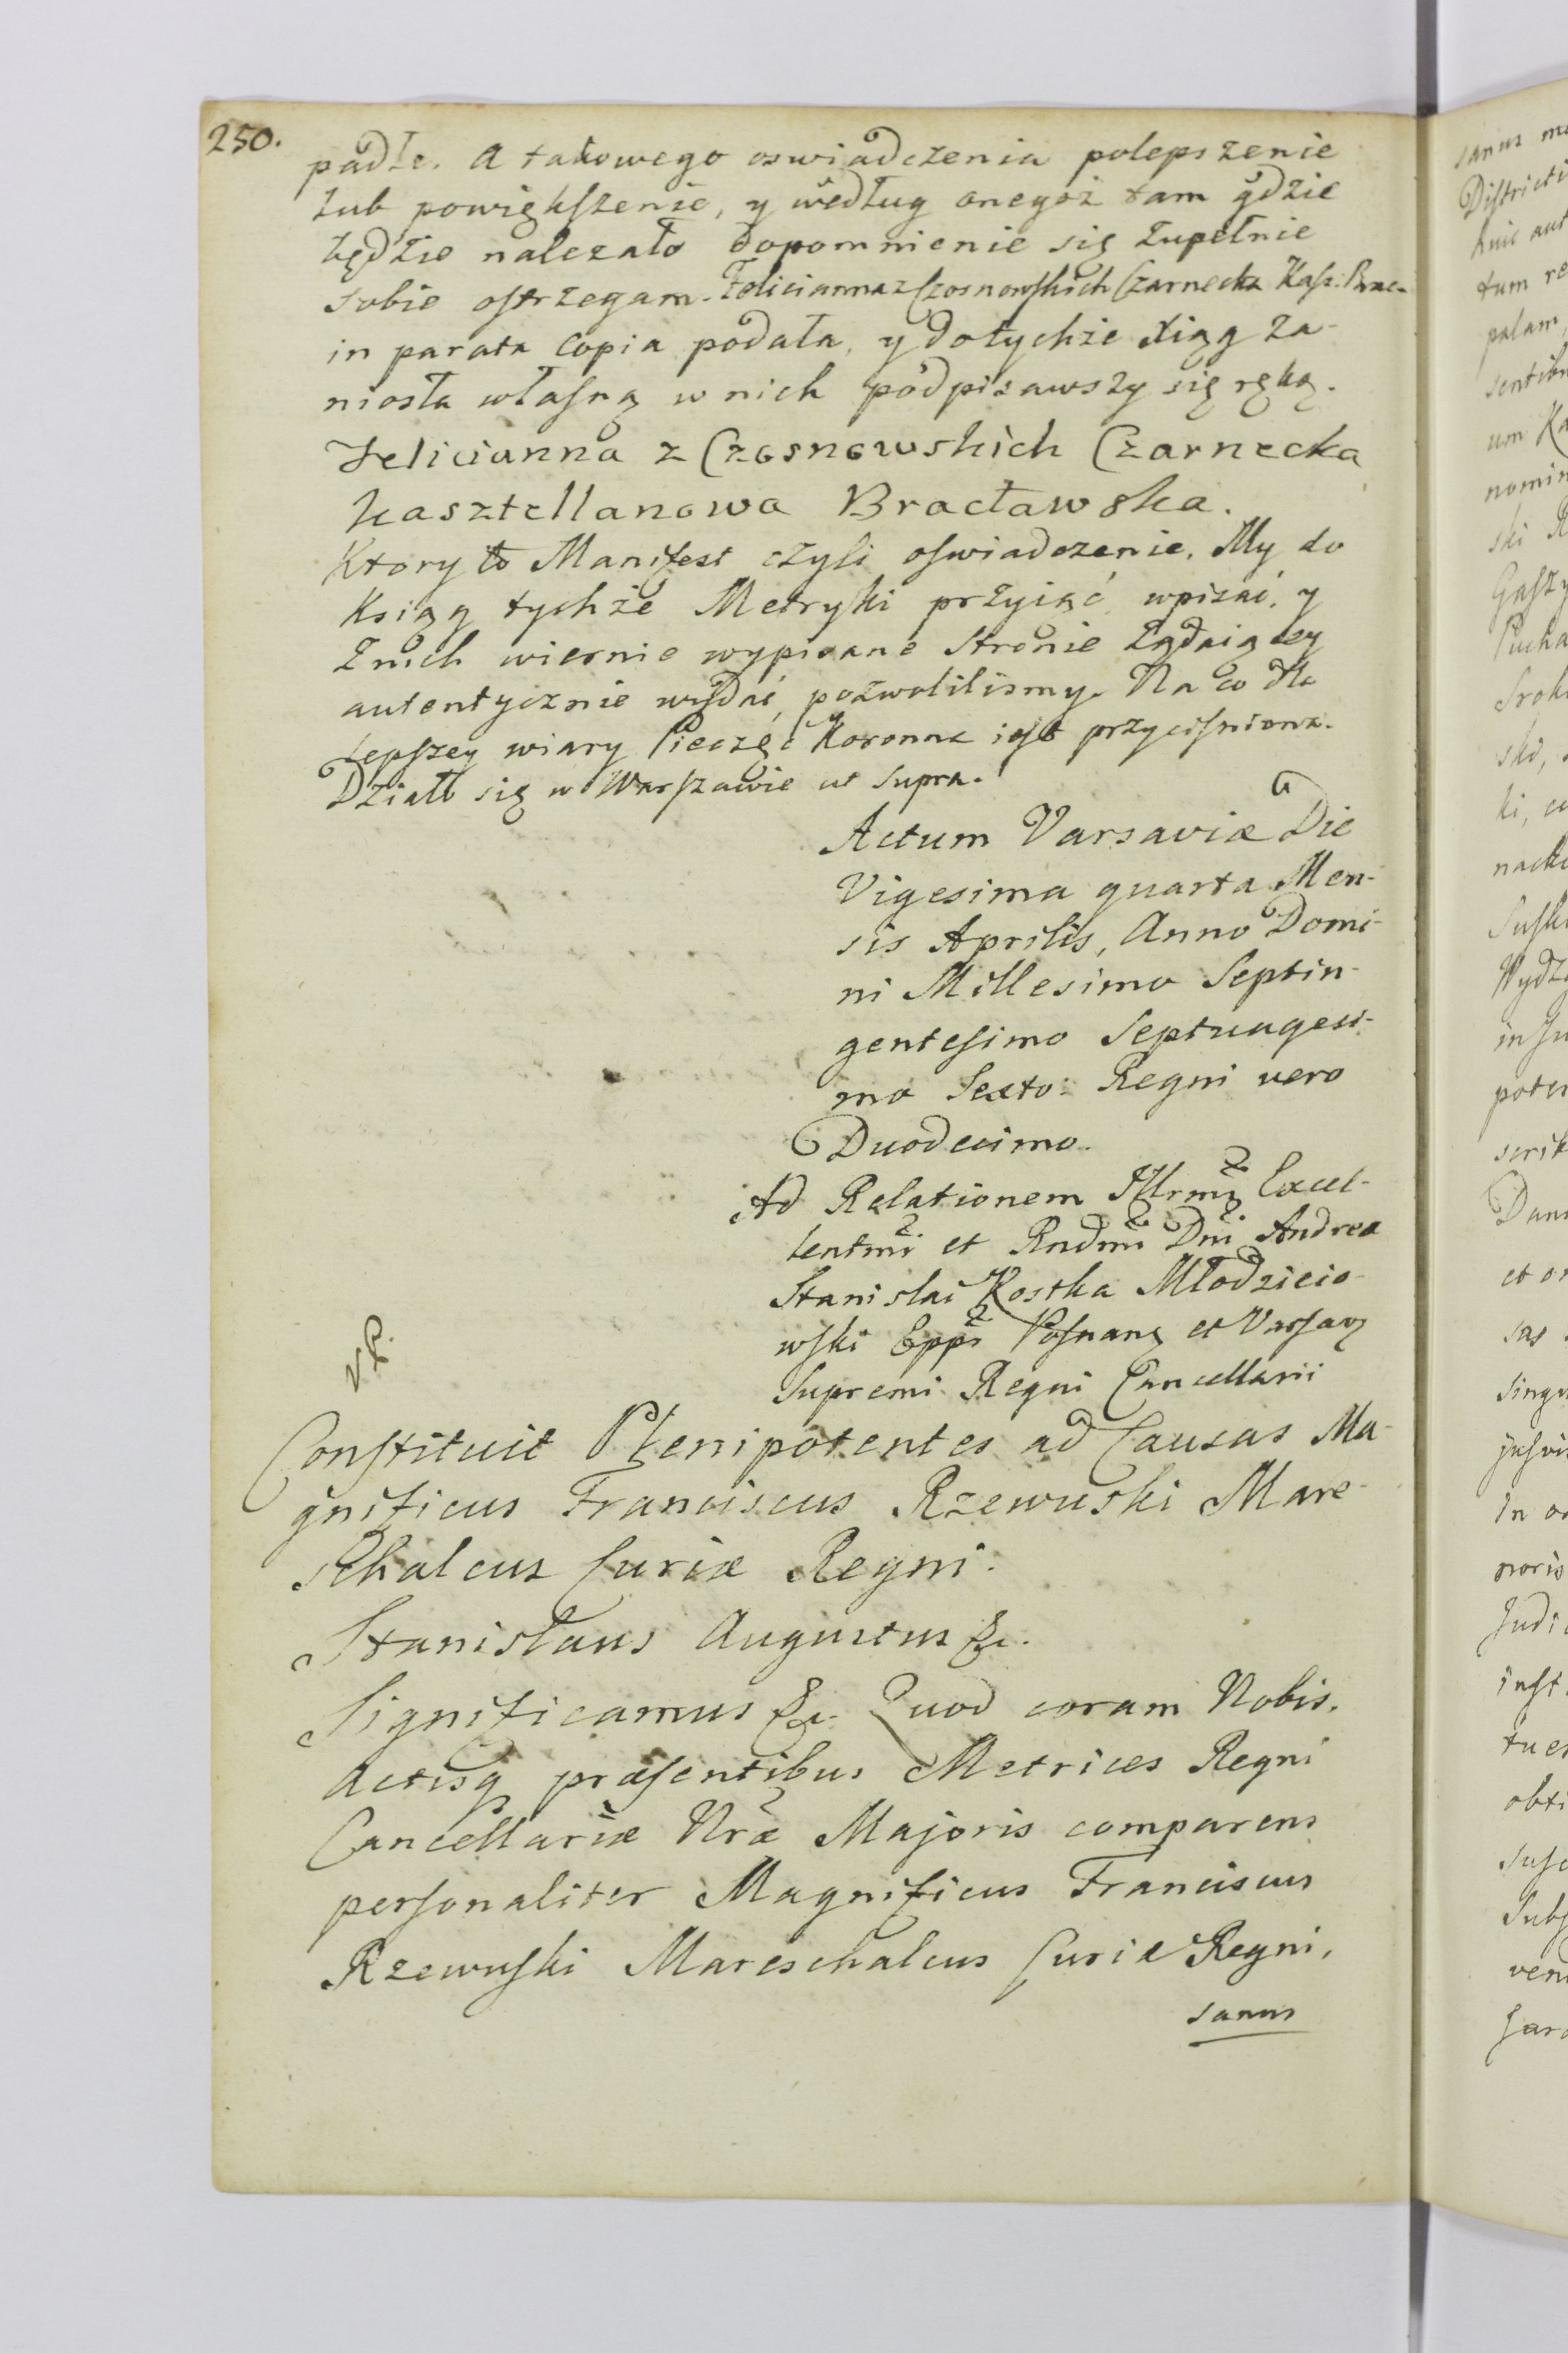 250.
padłe. A takowego oswiadczenia polepszenie
lub powiększenie, y według onegoż tam gdzie
będzie nalezało dopomnienie się zupełnie
sobie ostrzegam. Felicianna z Czosnowskich Czarnecka Kasz: Brac.
in parata Copia podała, y do tychże Xiąg za-
niosła własną w nich podpisawszy się ręką.
Felicianna z Czosnowskich Czarnecka
Kasztellanowa Bracławska.
Ktory to Manifest czyli oswiadczenie, My do
Ksiąg tychże Metryki przyiąć wpisać, y
z nich wiernie wypisane Stronie żądaiącey
autentycznie wydać pozwolilismy. Na co dla
lepszey wiary Pieczęć Koronna iest przycisniona.
Działo się w Warszawie ut Supra.
Actum Varsaviæ Die
Vigesima quarta Men-
sis Aprilis, Anno Domi-
ni Millesimo Septin-
gentesimo Septuagesi-
mo Sexto. Regni vero
Duodecimo.
Ad Relationem Illrmi Excel-
lentmi et Rndmi Dni Andreæ
Stanislai Kostka Młodzieio-
wski Eppi Posnan et Varsav
Supremi Regni Cancellarii
VR.
Constituit Plenipotentes ad Causas Ma-
gnificus Franciscus Rzewuski Mare-
schalcus Curiæ Regni.
Stanislaus Augustus &c.
Significamus &c. Quod coram Nobis,
Actisq præsentibus Metrices Regni
Cancellariæ Nræ Majoris comparens
personaliter Magnificus Franciscus
Rzewuski Mareschalcus Curiæ Regni,
sanus
sanus
Districti
huic aut
tum re
palam,
sentibu
um Ka
nomin
ski R
Gaszy
Pucha
ski,
ki, co
nacki
Suski
in Ju
poter
scrib
Dan
et o
sas
singu
In o
noris
Judi
inst
tuer
obti
susc
Subs